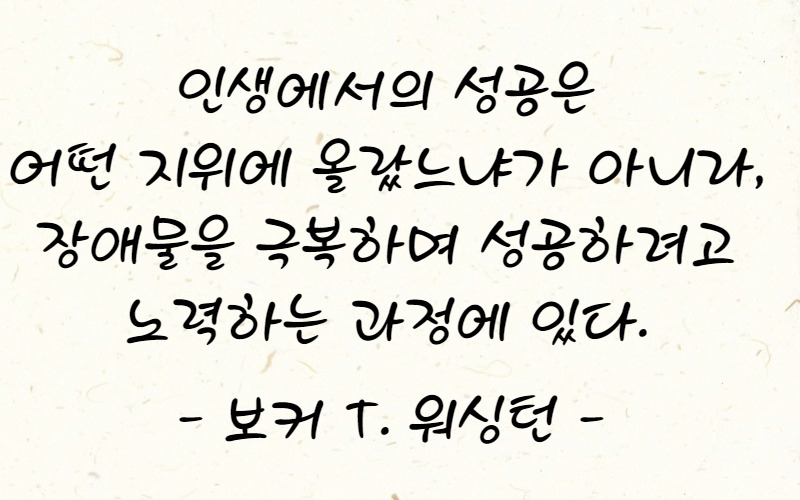 인생에서의 성공은
어떤 지위에 올랐느냐가 아니라,
장애물을 극복하며 성공하려고
노력하는 과정에 있다.
- 보커 T. 워싱턴 -